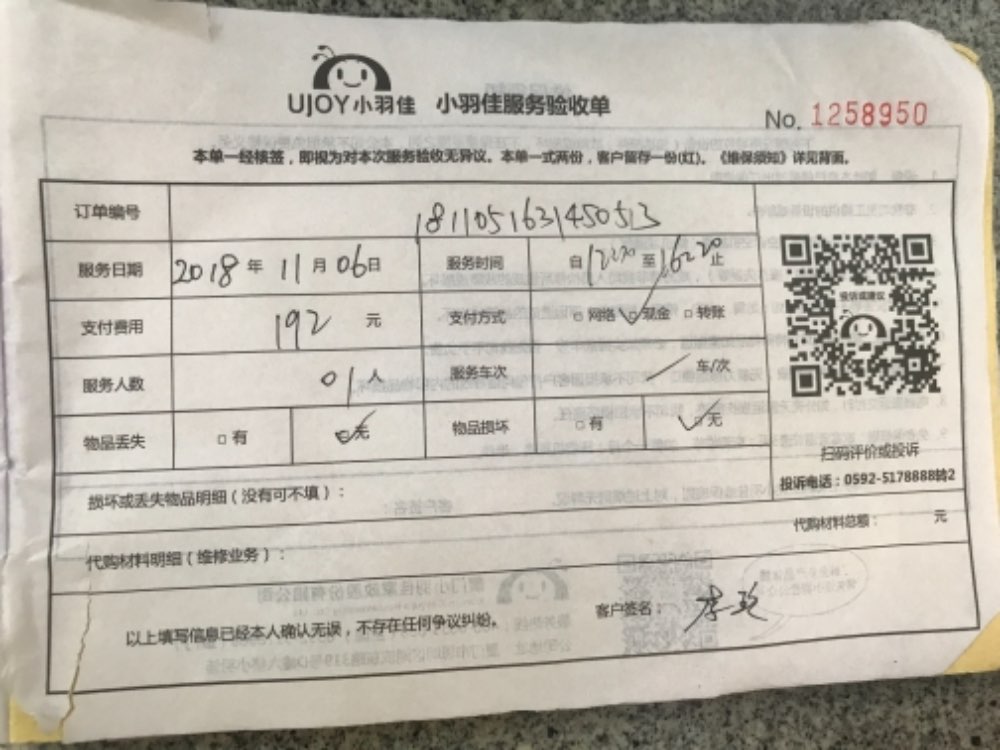 UJOY小羽佳 小羽佳服务验收单
No. 1258950
本单一经核签，即视为对本次服务验收无异议。本单一式两份，客户留存一份(红)。《维保须知》详见背面。
订单编号 1811051631450513
服务日期 2018年11月06日 服务时间 自12:20至16:20止
支付费用 192元 支付方式 □网络 □现金 □转账
投诉或建议
服务人数 01人 服务车次 车/次
物品丢失 □有 □无 物品损坏 □有 □无
扫码评价或投诉
投诉电话：0592-5178888转2
损坏或丢失物品明细（没有可不填）：
代购材料总额： 元
代购材料明细（维修业务）：
客户签名：
以上填写信息已经本人确认无误，不存在任何争议纠纷。